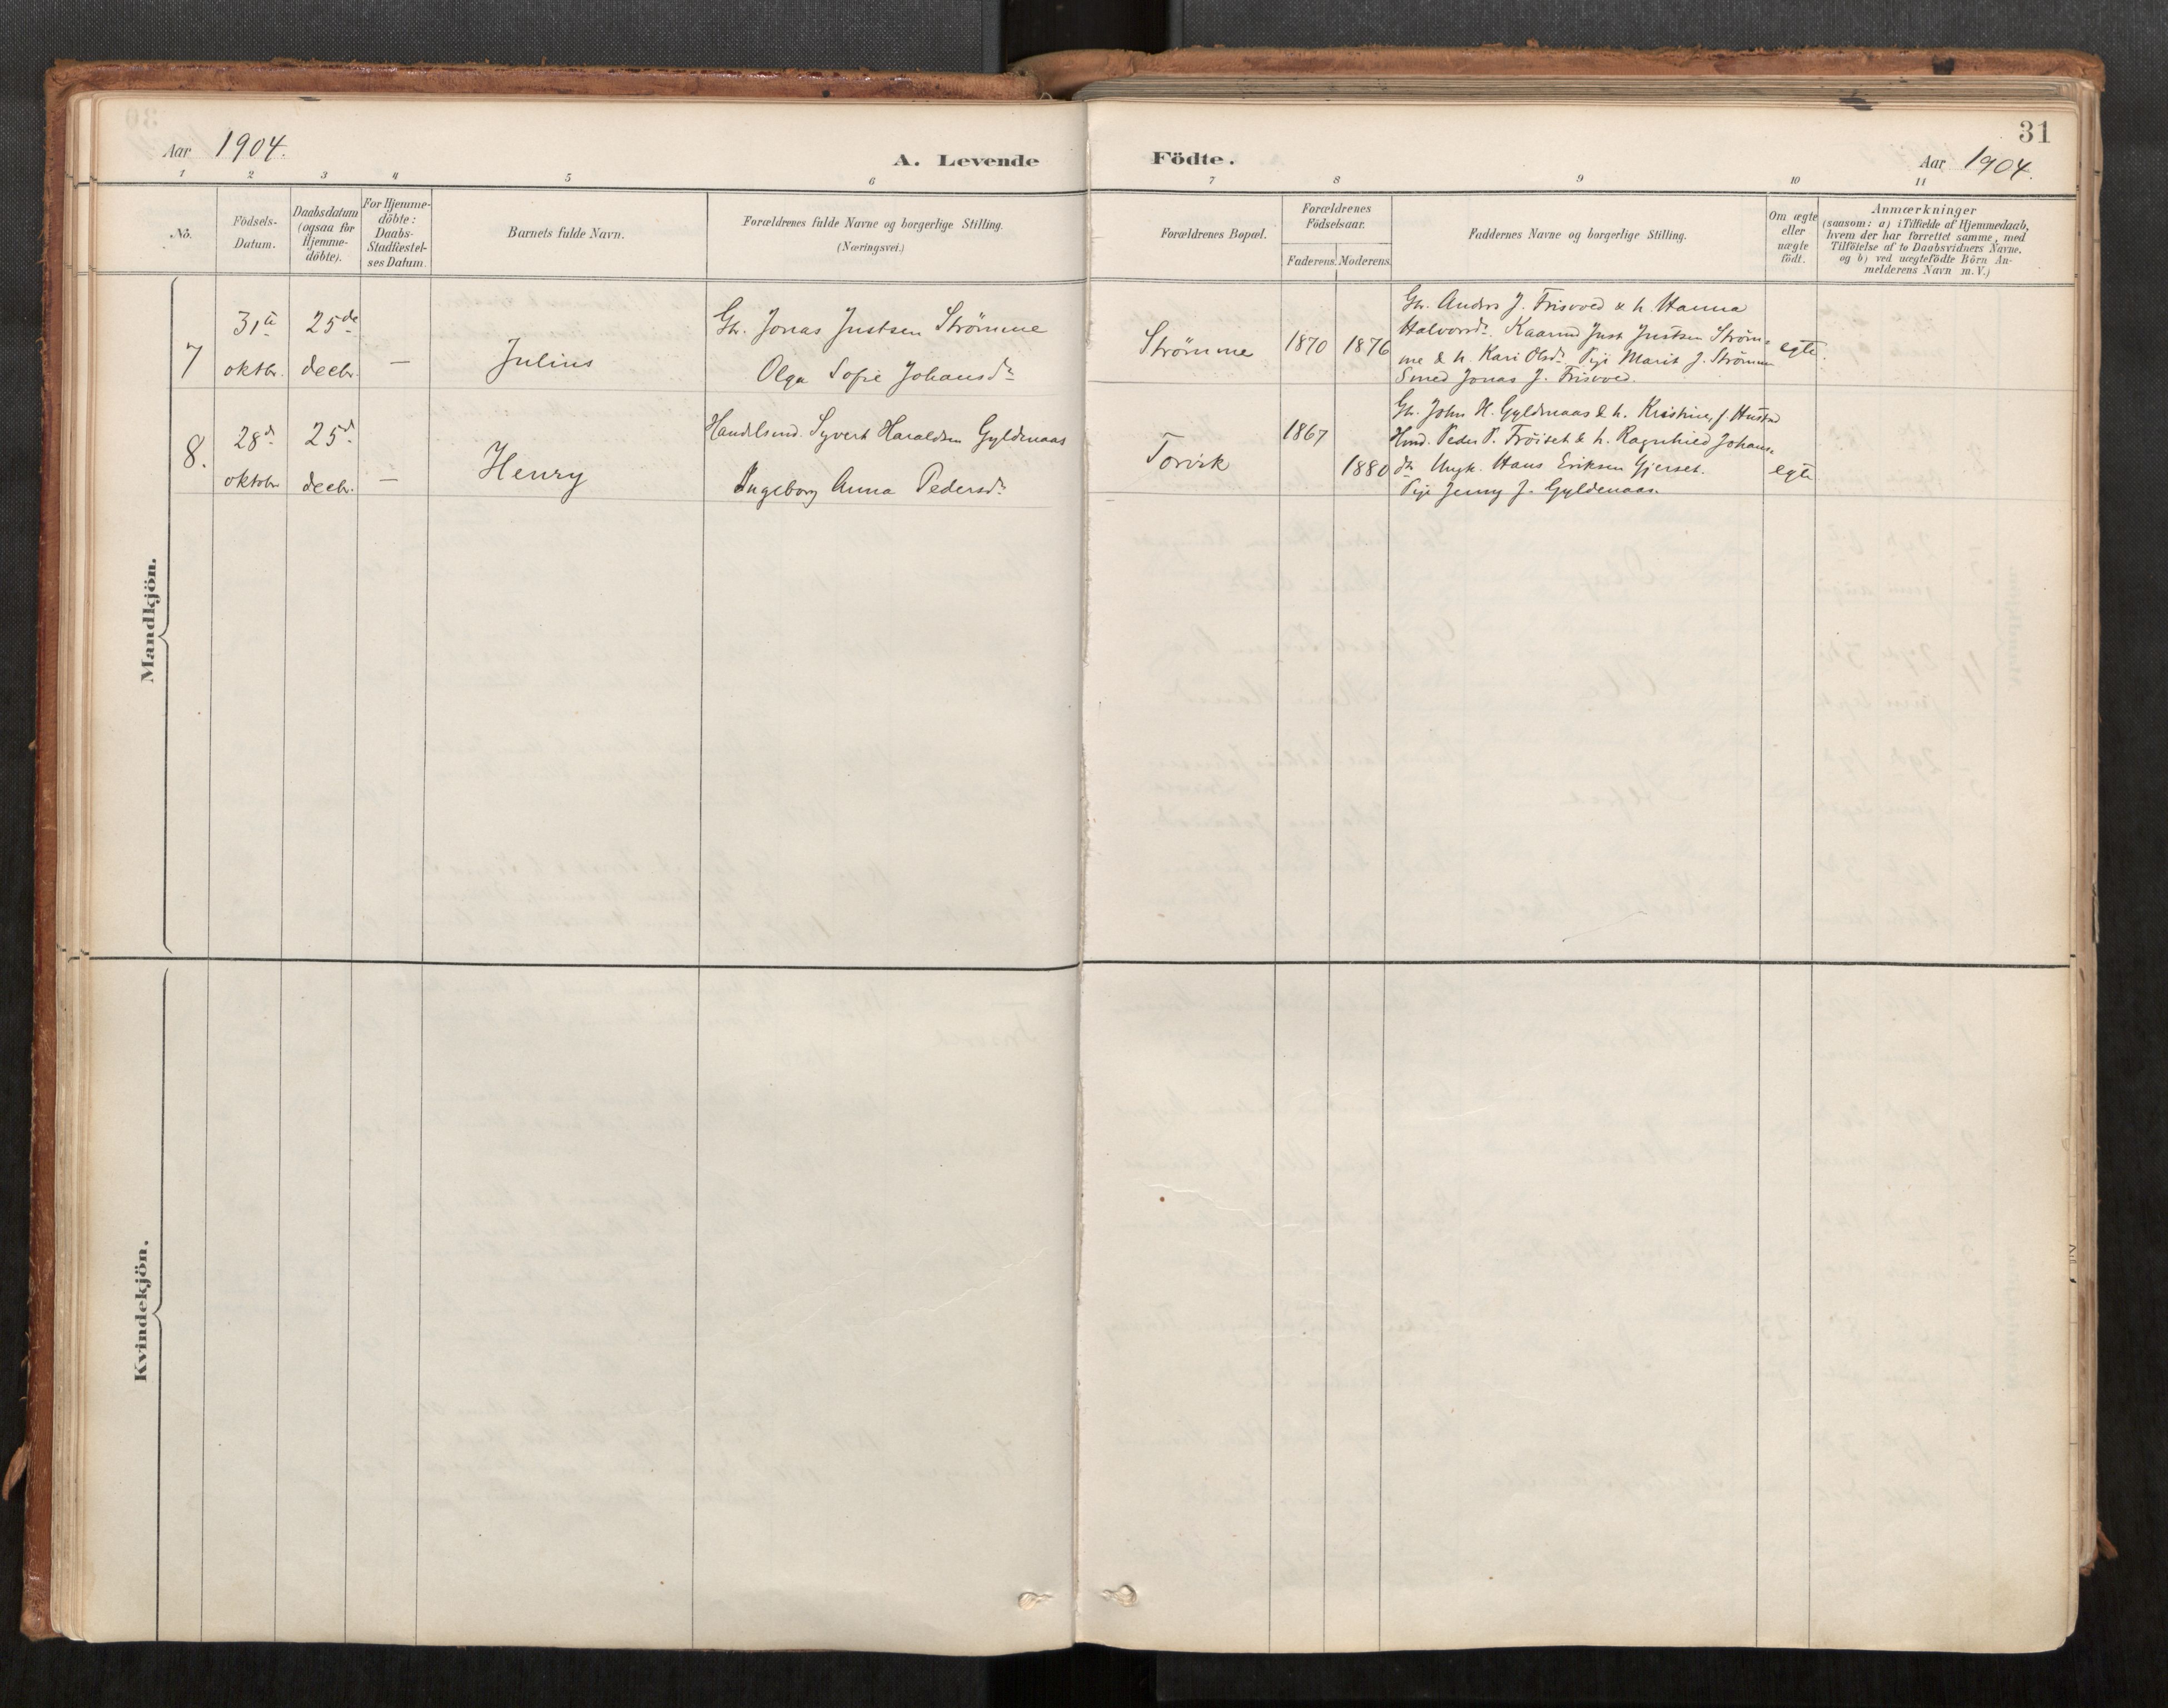 31
Aar 1904.
A. Levende Födte.
Aar 1904.
1 2 3 4 5 6 7 8 9 10 11
No.
Födsels-
Datum.
Daabsdatum
(ogsaa for
Hjemme-
döbte).
For Hjemme-
döbte:
Daabs-
Stadfæstel-
ses Datum.
Barnets fulde Navn.
Forældrenes fulde Navne og borgerlige Stilling.
(Næringsvei.)
Forældrenes Bopæl.
Forældrenes
Födselsaar.
Faderens. Moderens.
Faddernes Navne og borgerlige Stilling.
Om ægte
eller
uægte
födt.
Anmærkninger
(saasom: a) i Tilfælde af Hjemmedaab,
hvem der har forrettet samme, med
Tilföielse af to Daabsvidners Navne.
og b) ved uægtefödte Börn An-
melderens Navn m. V.)
Mandkjön.
7
31te
oktbr.
25de
decbr.
—
Julius
Gbr. Jonas Justsen Strömme
Olga Sofie Johansdr
Strömme
1870 1876
Gbr. Anders J. Frisvoed & h. Hanna
Halvorsdr. Kaarmd Just Justsen Ström-
me & h. Kari Olsdr. Pige Marit J. Strömme
Smed Jonas J. Frisvoed.
egte.
8.
28d
oktobr
25d
decbr.
—
Henry
Handelsmd. Syvert Haraldsen Gyldenaas
Ingeborg Anna Pedersdr
Torvik
1867
1880
Gbr. John H. Gyldenaas & h. Kristine, f. Hustad
Hmd. Peder P. Fröiset & h. Ragnhild Johans-
dr. Ungk. Hans Eriksen Gjerset.
Pige Jenny J. Gyldenaas.
egte
Kvindekjön.